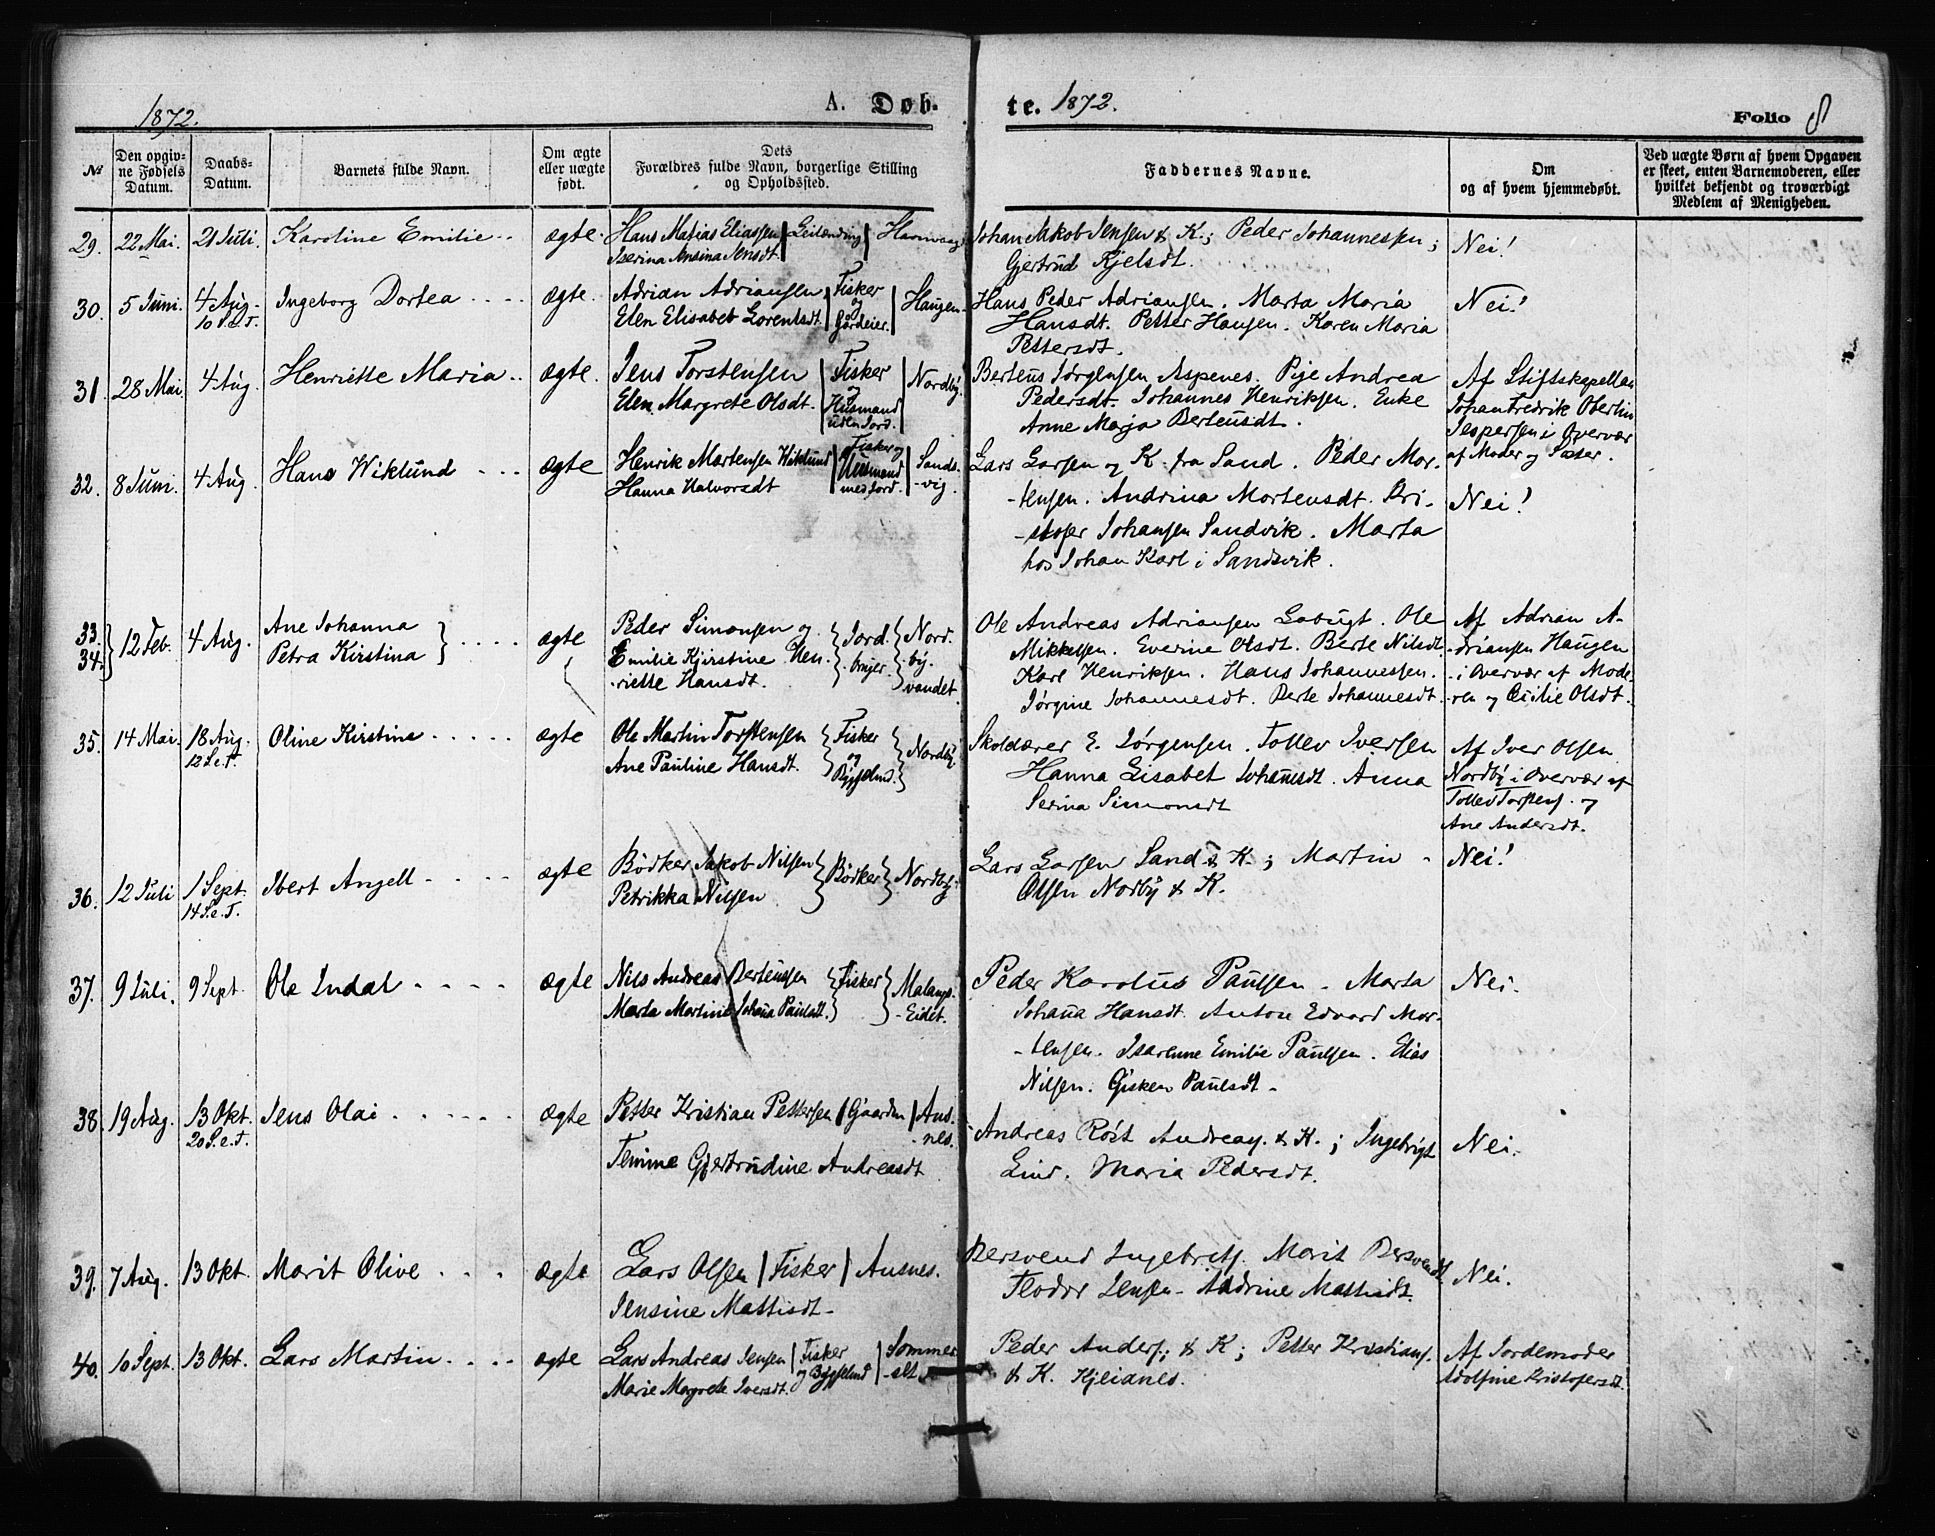 1872. A. Døb- te. 1872. Folio 8
№ | Den opgivne Fødsels Datum. | Daabs-Datum. | Barnets fulde Navn. | Om ægte eller uægte født. | Dets Forældres fulde Navn, borgerlige Stilling og Opholdssted. | Faddernes Navne. | Om og af hvem hjemmedøbt. | Ved uægte Børn af hvem Opgaven er skeet, enten Barnemoderen, eller hvilket bekjendt og troværdigt Medlem af Menigheden.
29. 22 Mai. 21 Juli. Karoline Emilie ægte. Hans Matias Eliassen | Leilænding | Havnvaag
Johan Jakob Jensen & K.; Peder Johannessen; Nei!
Gjertrud Kjelsdt.
30. 5 Juni. 4 Aug. Ingeborg Dortea ægte. Adrian Adriansen | Fisker | Haugen
10 S.e.T. Elen Elisabet Lorentsdt. | og Gårdeier.
Hans Peder Adriansen. Marta Maria Nei!
Hansdt. Petter Hansen. Karen Maria
Pettersdt.
31 28 Mai 4 Aug. Henriette Maria ægte. Jens Torstensen | Fisker | Nordby.
Elen Margrete Olsdt. | og Husmand uden Jord.
Berteus Jørgensen Aspenes. Pije Andrea Af Stiftskapellan
Pedersdt. Johannes Henriksen. Enke Johan Fredrik Oberlin
Anne Marja Berteusdt. Jespersen i Overvær
af Moder og Søster.
32. 8 Juni. 4 Aug. Hans Wiklund ægte Henrik Martensen Wiklund | Fisker og | Sands-
Hanna Halvorsdt | Husmand med Jord | -vig.
Lars Larsen og K. fra Sand. Peder Mor-
-tensen. Andrina Mortensdt. Kri- Nei!
-stofer Johansen Sandvik. Marta
hos Johan Karl i Sandsvik.
33. 34. 12 Feb. 4 Aug. Ane Johanna ægte Peder Simonsen og { Jord- { Nord-
Petra Kirstina Emilie Kjirstine Hen- bruger. by-
-riette Hansdt. vandet
Ole Andreas Adriansen Labugt. Ole Af Adrian A-
Mikkelsen. Everine Olsdt. Berte Nilsdt. -driansen Haugen
Karl Henriksen. Hans Johannessen. i Overvær af Mode-
Jørgine Johannesdt. Berte Johannesdt. ren og Cecilie Olsdt.
35. 14 Mai. 18 Aug. Oline Kirstine ægte Ole Martin Torstensen { Fisker { Nordby.
12 S.e.T. Ane Pauline Hansdt. og Bygselmd.
Skolelærer E. Jørgensen. Tollev Iversen Af Iver Olsen
Hanna Lisabet Johannsdt. Anna Nordby i Overvær af
Serina Simonsdt Tollev Torstens. og
Ane Andersdt.
36. 12 Juli 1 Sept. Ibert Angell ægte Bødker Jakob Nilsen } Bødker } Nordby.
14 S.e.T. Petrikka Nilsen
Lars Larsen Sand & K.; Martin Nei!
Olsen Nordby & K.
37. 9 Juli. 9 Sept. Ole Indal ægte Nils Andreas Berteussen { Fisker { Malangs-
Marta Martine Johanna Paulsdt. -Eidet.
Peder Karolus Paulsen. Marta Nei.
Johanna Hansdt. Anton Edvard Mor-
-tensen. Isarenne Emilie Paulsen. Elias
Nilsen. Gisken Paulsdt.
38. 19 Aug. 13 Okt. Jens Olai ægte Petter Kristian Pettersen | Gaardm | Aus-
20 S.e.T. -nes.
Temine Gjertrudine Andreasdt
Andreas Røst Andreas. & K.; Ingebrigt Nei.
Lind. Maria Pedersdt.
39. 7 Aug. 13 Okt. Marit Olive ægte Lars Olsen | Fisker | Ausnes.
Jensine Mattisdt.
Bersvend Ingebrets. Marit Bersvendt. Nei.
Teodor Jensen. Andrine Mattisdt.
40. 10 Sept. 13 Okt. Lars Martin ægte Lars Andreas Jensen | Fisker | Sommer-
Marie Margrete Iversdt. | og Bygselmd | -selt
Peder Anders. & K; Petter Kristians. Af Jordemoder
& K. Kjeidnes. Adolfine Kristofersdt.